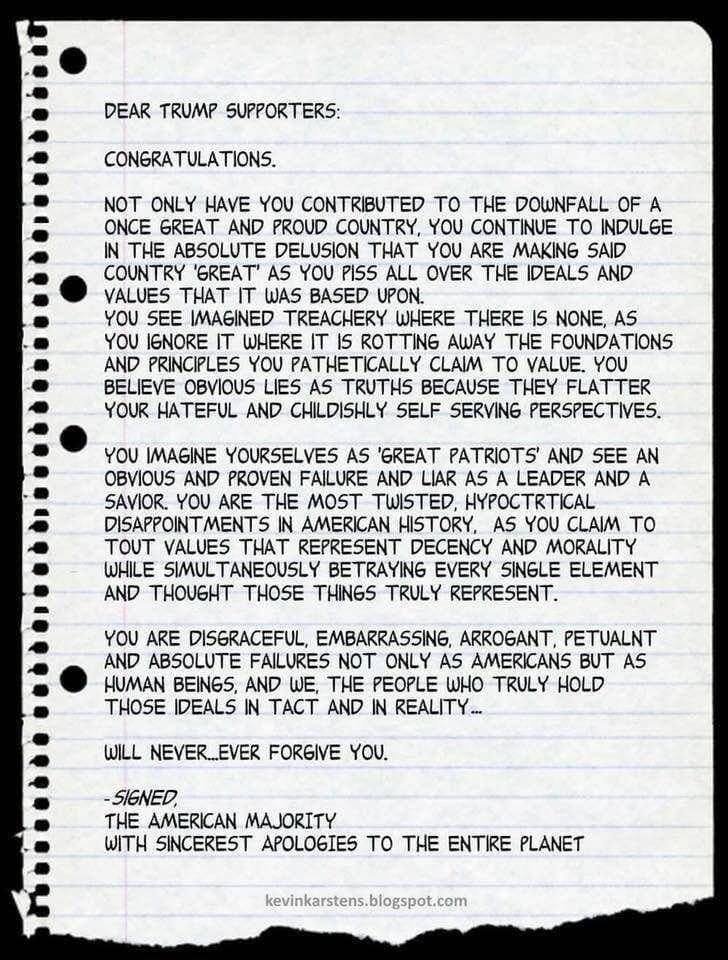 DEAR TRUMP SUPPORTERS:
CONGRATULATIONS.
NOT ONLY HAVE YOU CONTRIBUTED TO THE DOWNFALL OF A
ONCE GREAT AND PROUD COUNTRY, YOU CONTINUE TO INDULGE
IN THE ABSOLUTE DELUSION THAT YOU ARE MAKING SAID
COUNTRY 'GREAT' AS YOU PISS ALL OVER THE IDEALS AND
VALUES THAT IT WAS BASED UPON.
YOU SEE IMAGINED TREACHERY WHERE THERE IS NONE, AS
YOU IGNORE IT WHERE IT IS ROTTING AWAY THE FOUNDATIONS
AND PRINCIPLES YOU PATHETICALLY CLAIM TO VALUE. YOU
BELIEVE OBVIOUS LIES AS TRUTHS BECAUSE THEY FLATTER
YOUR HATEFUL AND CHILDISHLY SELF SERVING PERSPECTIVES.
YOU IMAGINE YOURSELVES AS 'GREAT PATRIOTS' AND SEE AN
OBVIOUS AND PROVEN FAILURE AND LIAR AS A LEADER AND A
SAVIOR. YOU ARE THE MOST TWISTED, HYPOCTRTICAL
DISAPPOINTMENTS IN AMERICAN HISTORY,  AS YOU CLAIM TO
TOUT VALUES THAT REPRESENT DECENCY AND MORALITY
WHILE SIMULTANEOUSLY BETRAYING EVERY SINGLE ELEMENT
AND THOUGHT THOSE THINGS TRULY REPRESENT.
YOU ARE DISGRACEFUL, EMBARRASSING, ARROGANT, PETUALNT
AND ABSOLUTE FAILURES NOT ONLY AS AMERICANS BUT AS
HUMAN BEINGS, AND WE, THE PEOPLE WHO TRULY HOLD
THOSE IDEALS IN TACT AND IN REALITY...
WILL NEVER...EVER FORGIVE YOU.
-SIGNED,
THE AMERICAN MAJORITY
WITH SINCEREST APOLOGIES TO THE ENTIRE PLANET
kevinkarstens.blogspot.com